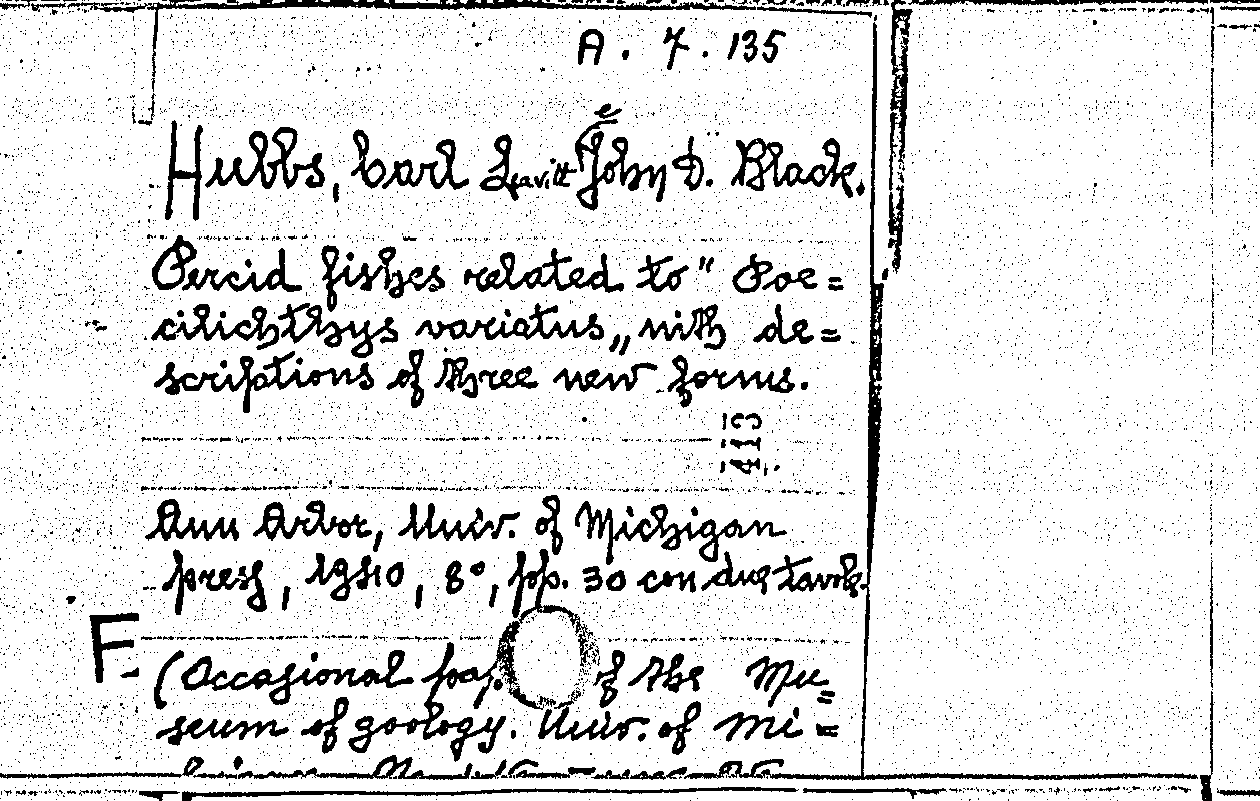 A. 7. 135
Hubbs, Carl Leavitt e John D. Black.
Percid fishes related to " Poe=
cilichthys variatus,, with de=
scriptions of three new forms.
Ann Arbor, Univ. of Michigan
press, 1940, 8°, pp. 30 con due tavole.
F
(Occasional pap. of the Mu=
seum of zoology. Univ. of Mi=